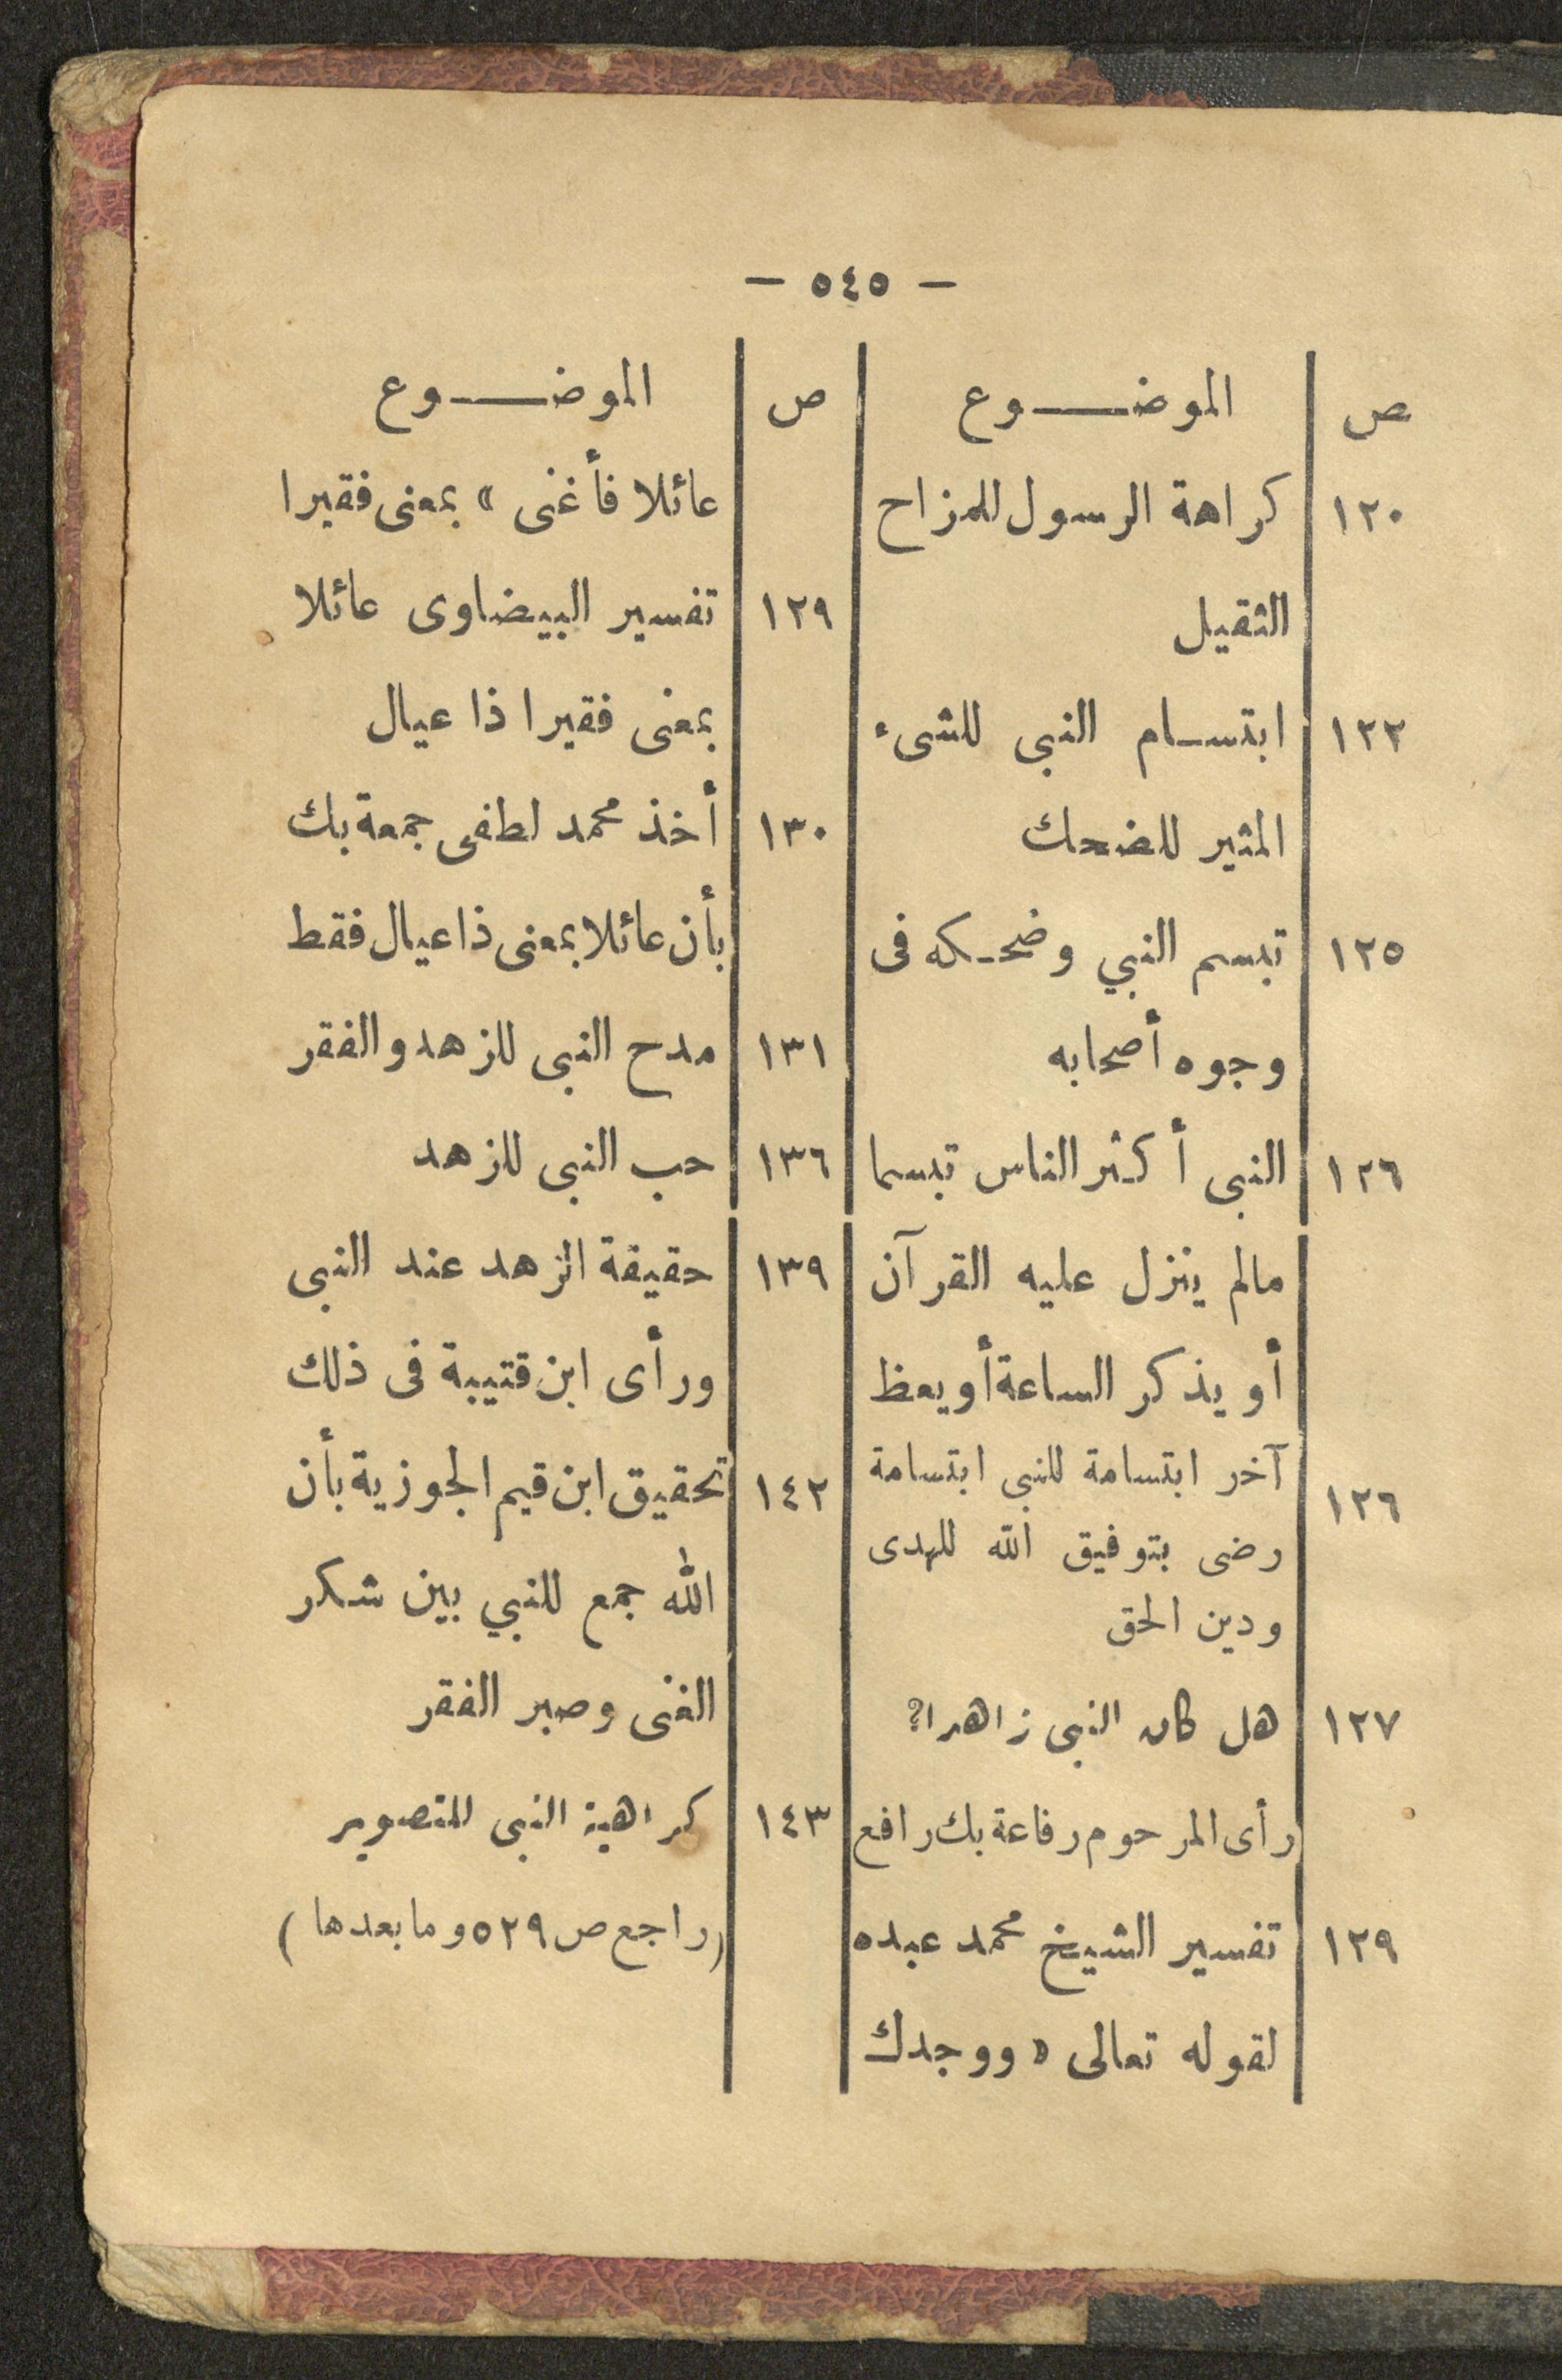 — ٥٤٥ —
ص الموضــــوع
١٢٠ كراهة الرسول للمزاح
الثقيل
١٢٢ ابتســام النبى للشىء
المثير للضحك
١٢٥ تبسم النبي وضحـكه فى
وجوه أصحابه
١٢٦ النبى أكثر الناس تبسما
مالم ينزل عليه القرآن
أو يذكر الساعة أو يعظ
١٢٦ آخر ابتسامة للنبى ابتسامة
رضى بتوفيق الله للهدى
ودين الحق
١٢٧ هل كان النبى زاهدا؟
رأى المرحوم رفاعة بك رافع
١٢٩ تفسير الشيخ محمد عبده
لقوله تعالى « ووجدك
ص الموضــــوع
عائلا فأغنى » بمعنى فقيرا
١٢٩ تفسير البيضاوى عائلا
بمعنى فقيرا ذا عيال
١٣٠ أخذ محمد لطفى جمعة بك
بأن عائلا بمعنى ذا عيال فقط
١٣١ مدح النبى للزهد والفقر
١٣٦ حب النبى للزهد
١٣٩ حقيقة الزهد عند النبى
ورأى ابن قتيبة فى ذلك
١٤٢ تحقيق ابن قيم الجوزية بأن
الله جمع للنبي بين شكر
الغنى وصبر الفقر
١٤٣ كراهية النبى للتصوير
(راجع ص ٥٢٩ وما بعدها)